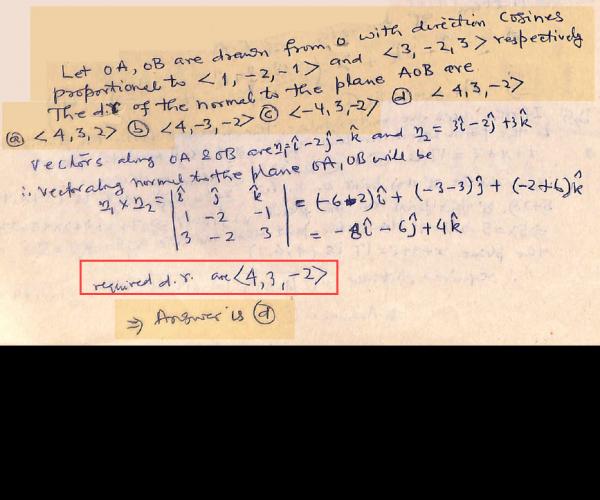 Let OA, OB are drawn from O with direction Cosines
proportional to < 1, -2, -1 > and < 3, -2, 3 > respectively
The d.r of the normal to the plane AOB are
ⓐ < 4, 3, 2 > ⓑ < 4, -3, -2 > ⓒ < -4, 3, -2 > ⓓ < 4, 3, -2 >
Vectors along OA & OB are r₁ = î - 2ĵ - k̂ and r₂ = 3î - 2ĵ + 3k̂
∴ Vector along normal to the plane OA, OB will be
r₁ × r₂ = | î ĵ k̂ | = (-6-2)î + (-3-3)ĵ + (-2+6)k̂
| 1 -2 -1 |
| 3 -2 3 | = -8î - 6ĵ + 4k̂
required d.r. are < 4, 3, -2 >
⇒ Answer is ⓓ